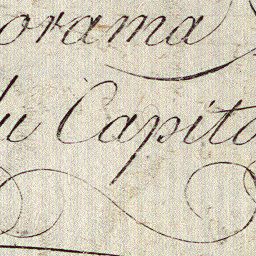 orama
du Capito